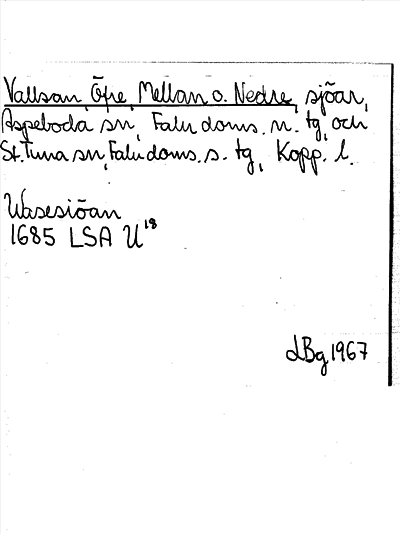 Vallsan, Övre, Mellan o. Nedre, sjöar,
Aspeboda sn, Falu doms. n. tg, och
St. Tuna sn, Falu doms. s. tg, Kopp. l.
Wasesiöan
1685 LSA U¹⁸
LBg 1967